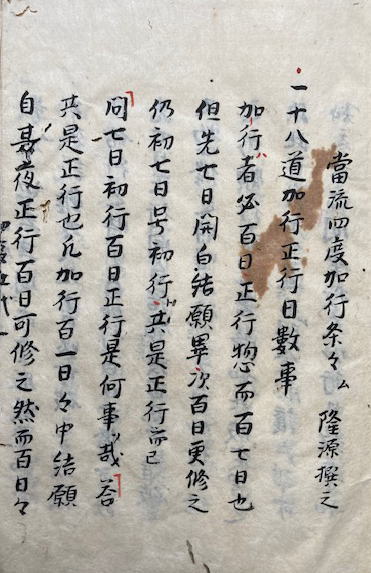 當流四度加行条々 隆源撰之
一十八道加行正行日數事
加行者必百日正行惣而百七日也
但先七日開白結願畢次百日更修之
仍初七日号初行共是正行而已
問七日初行百日正行是何事哉答
共是正行也凡加行百一日々中結願
自其夜正行百日可修之然而百日々